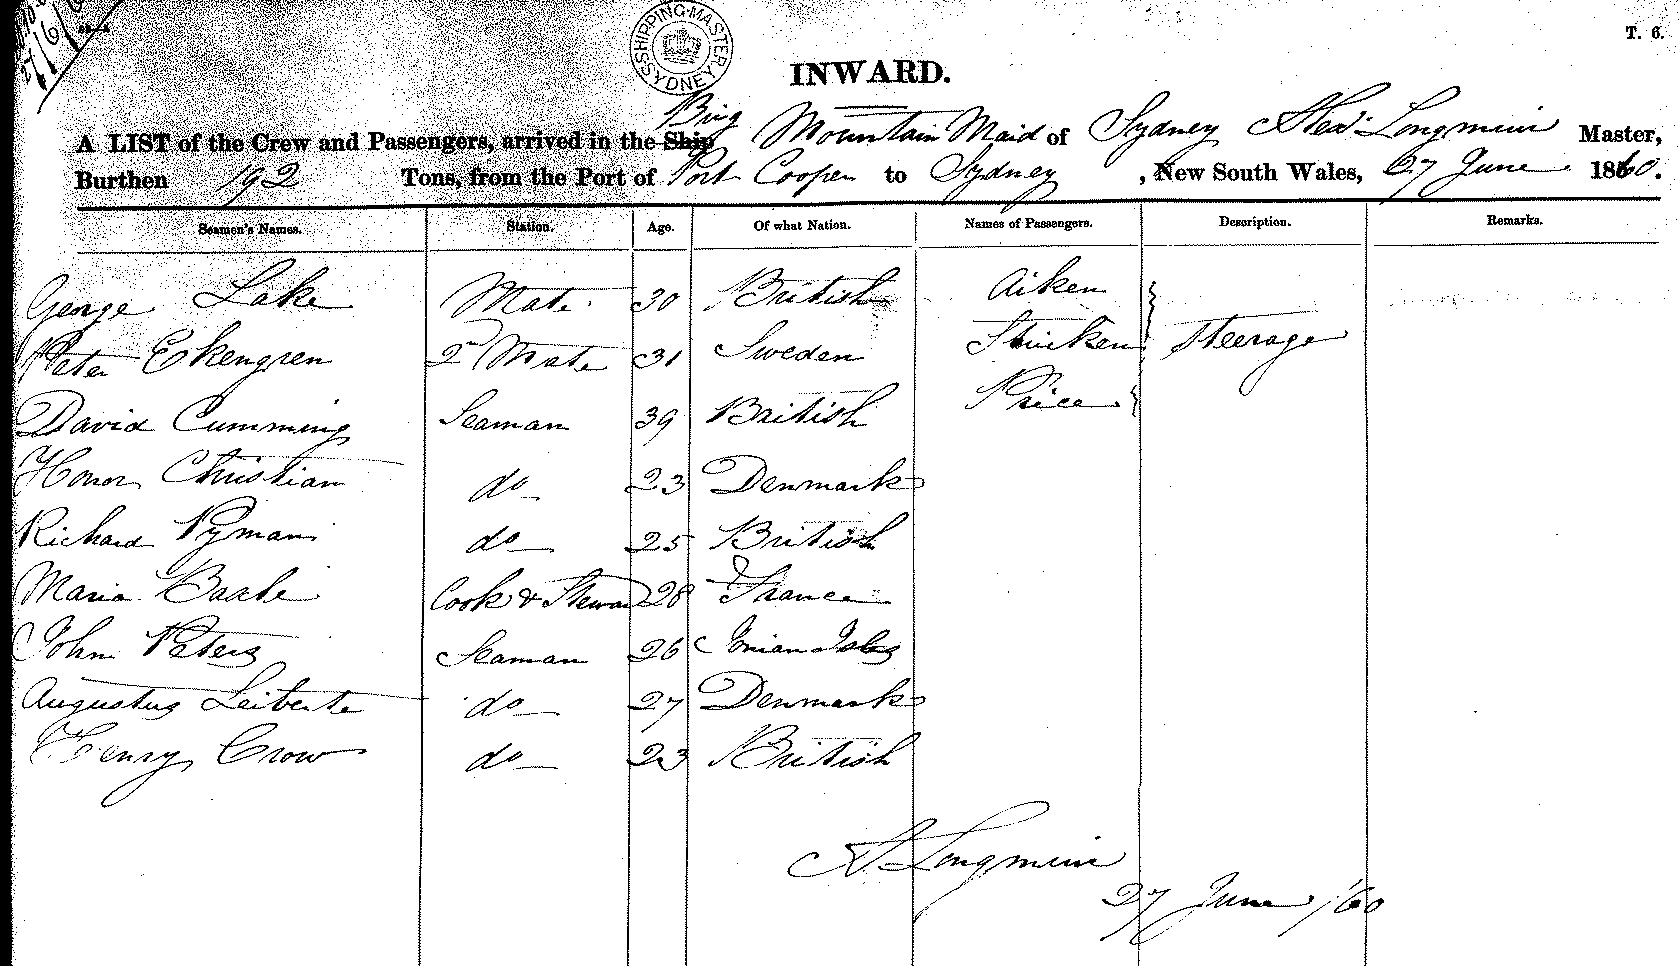 27/6/
SHIPPING MASTER SYDNEY
T. 6.
INWARD.
A LIST of the Crew and Passengers, arrived in the Ship Brig Mountain Maid of Sydney Alexr Longmuir Master,
Burthen 192 Tons, from the Port of Port Cooper to Sydney, New South Wales, 27 June 1860.
Seamen's Names. Station. Age. Of what Nation. Names of Passengers. Description. Remarks.
George Lake Mate 30 British Aiken
Peter Eckengren 2nd Mate 31 Sweden steerage
David Cumming Seaman 39 British Price
Honor Christian do 23 Denmark
Richard Pyman do 25 British
Cook & Steward 28 France
John Peters Seaman 26 Ionian Isles
Augustus do 27 Denmark
Henry Crow do 23 British
A Longmuir
27 June /60